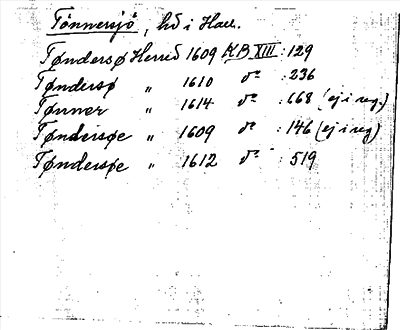 Tönnersjö, hd i Hall.
Tøndersø Herred 1609 K.B. XIII : 129
Tøndersø " 1610 do : 236
Tønner " 1614 do : 668 (ej i reg.)
Tøndersøe " 1609 do : 146 (ej i reg)
Tøndersøe " 1612 do : 519